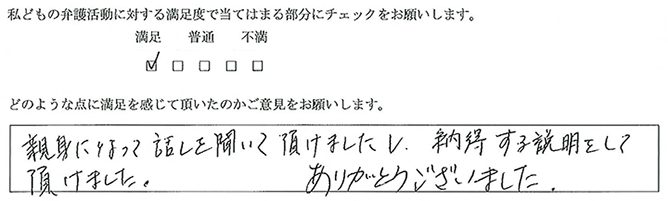 私どもの弁護活動に対する満足度で当てはまる部分にチェックをお願いします。
満足 普通 不満
☑ □ □ □ □
どのような点に満足を感じて頂いたのかご意見をお願いします。
親身になって話しを聞いて頂けましたし、納得する説明をして
頂けました。 ありがとうございました。